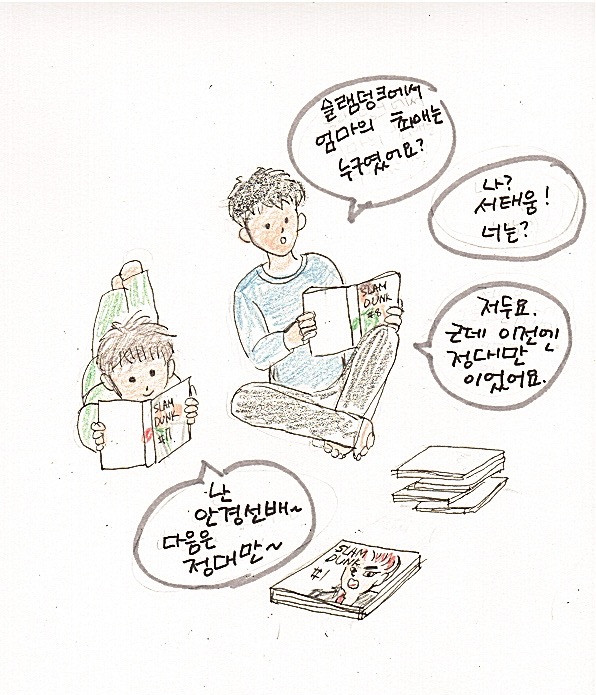 슬램덩크에서
엄마의 최애는
누구였어요?
나?
서태웅!
너는?
저두요.
근데 이전엔
정대만
이었어요.
SLAM
DUNK
#8
SLAM
DUNK
#11
난
안경선배~
다음은
정대만~
SLAM
DUNK
#1